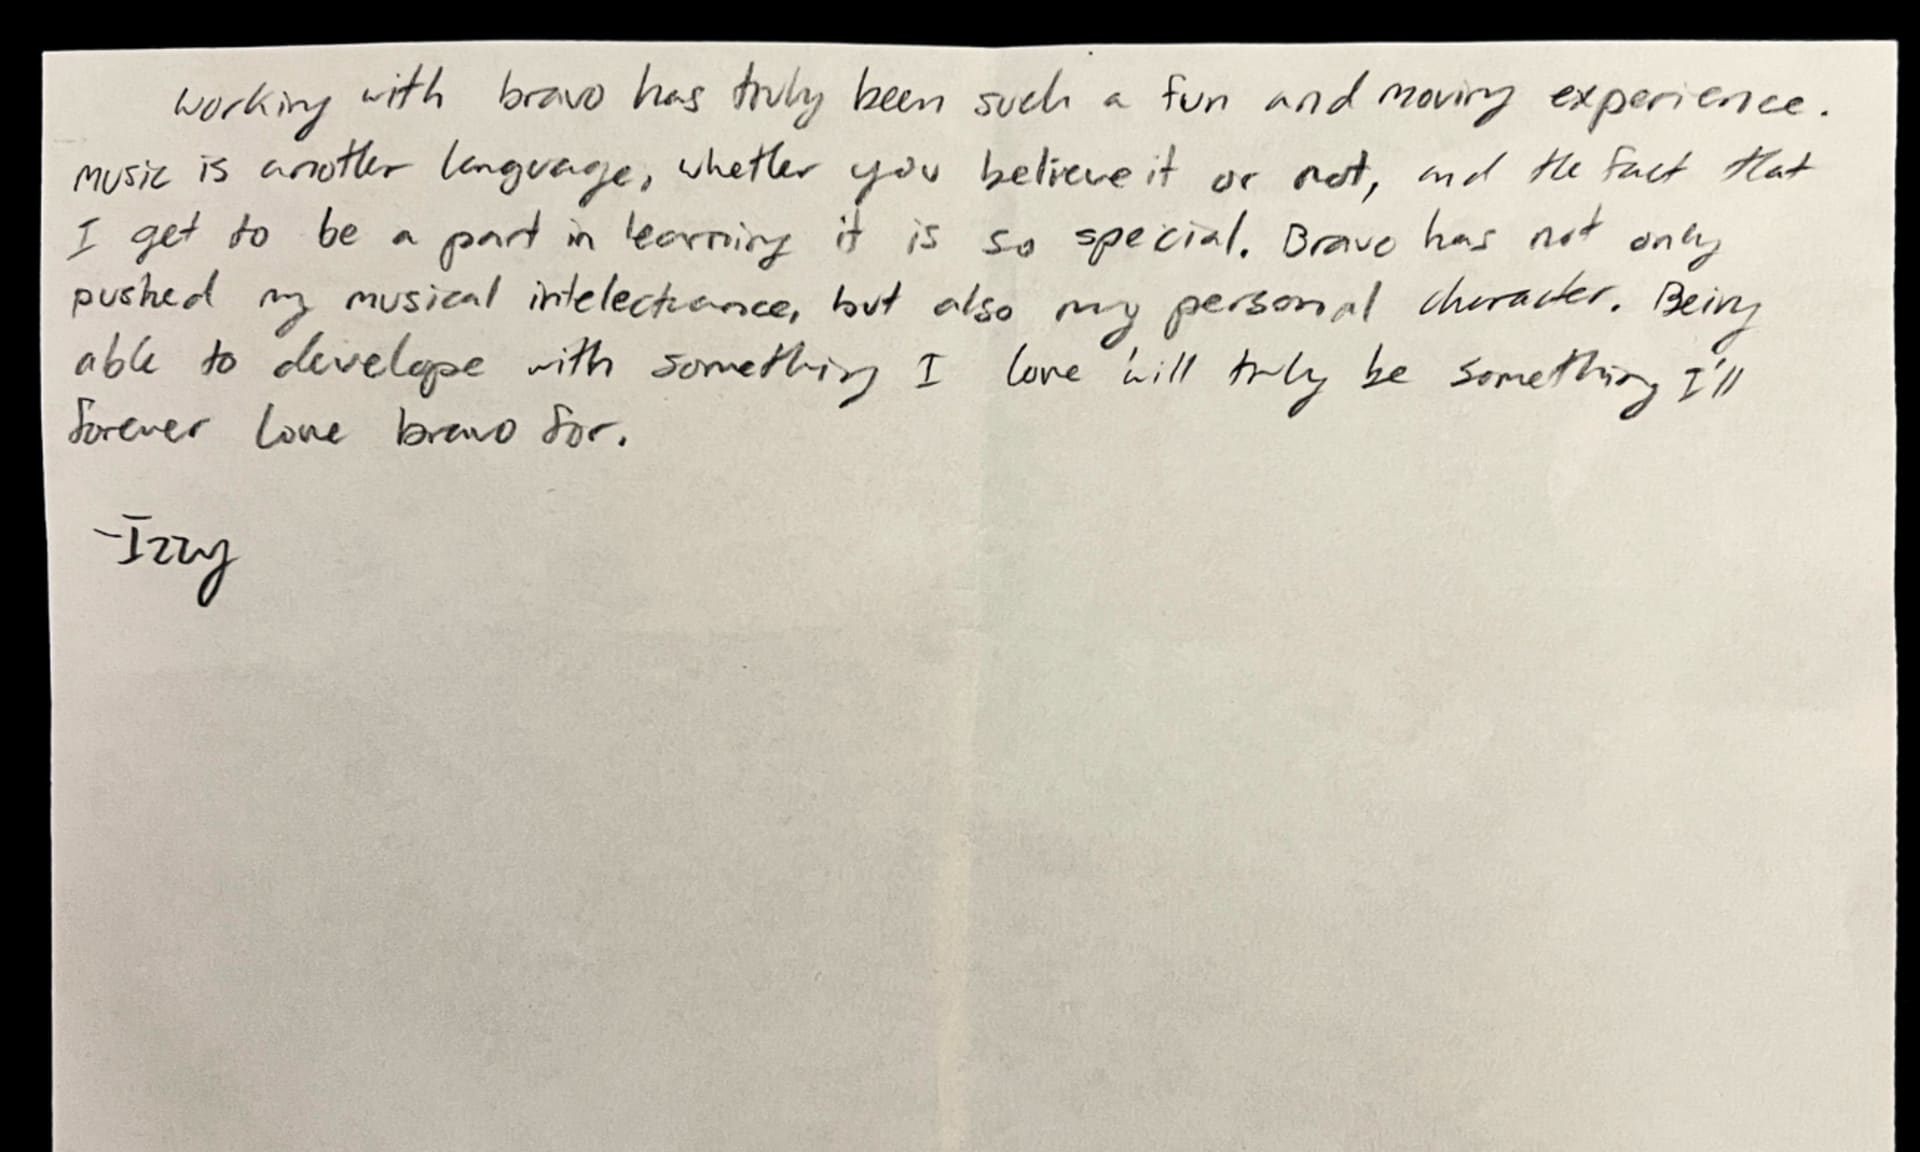 working with bravo has truly been such a fun and moving experience.
music is another language, whether you believe it or not, and the fact that
I get to be a part in learning it is so special. Bravo has not only
pushed my musical intelectuance, but also my personal character. Being
able to develope with something I love will truly be something I'll
forever love bravo for.
-Izzy